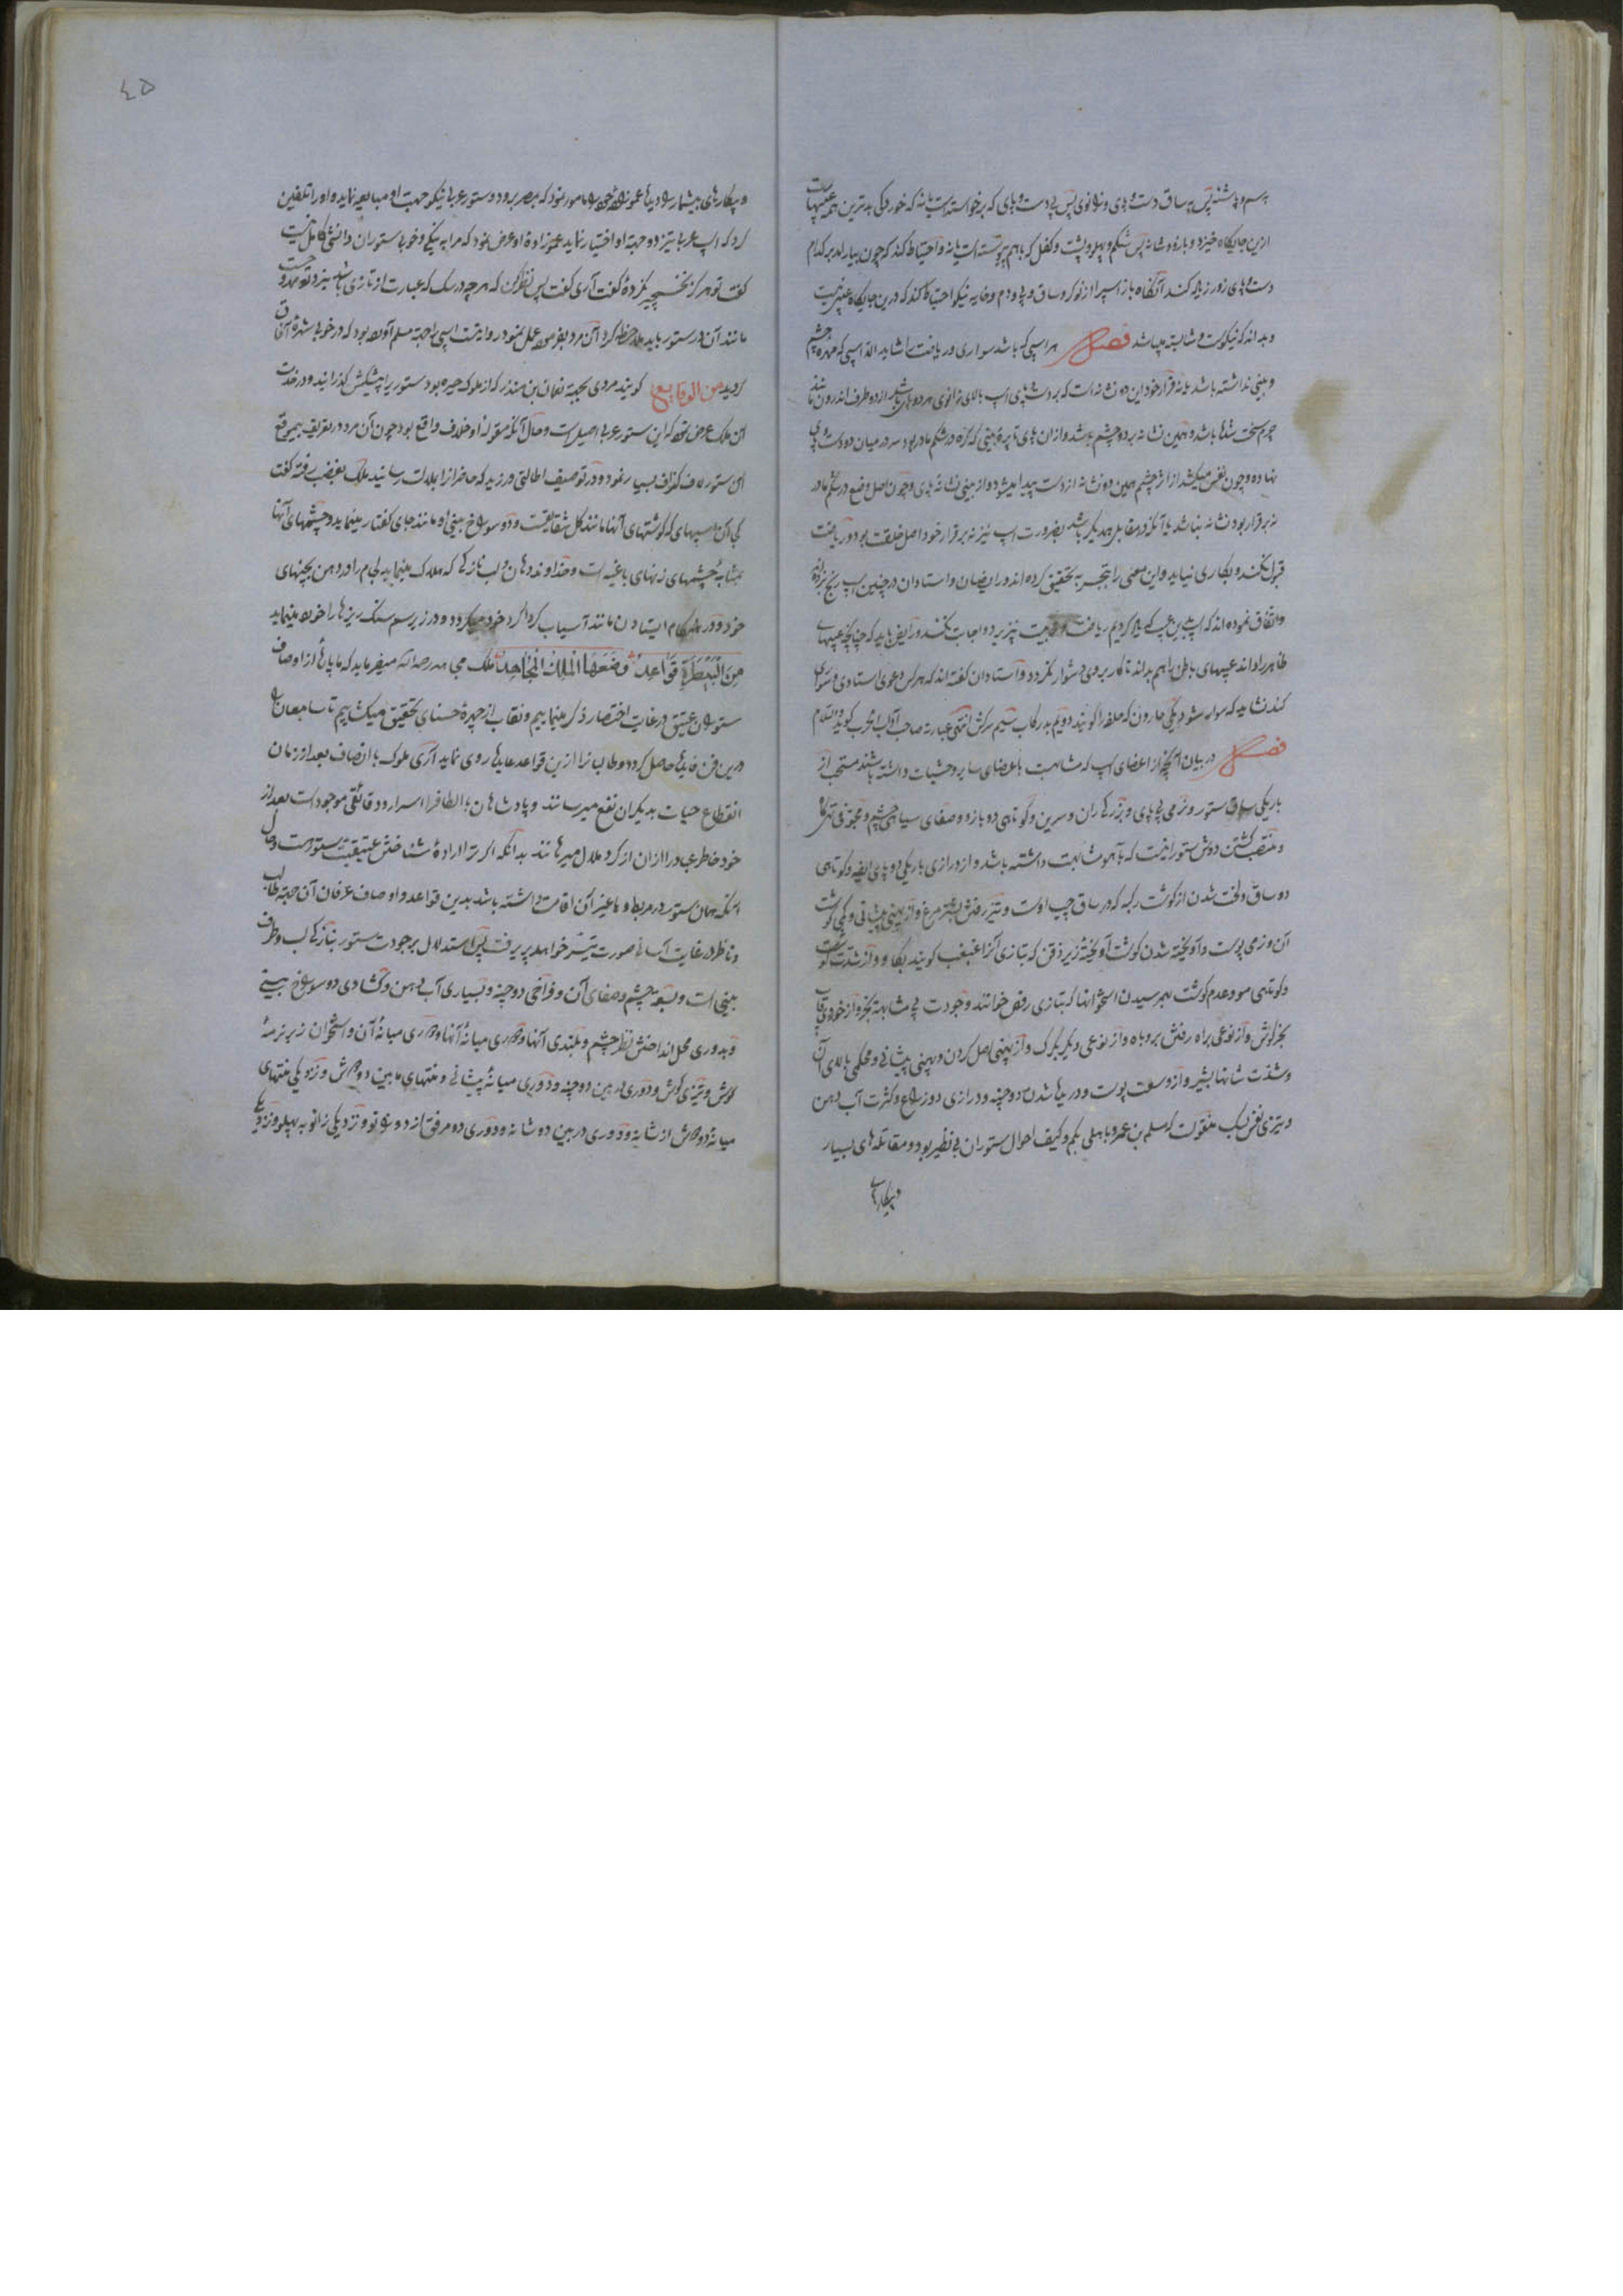 بسم و پاشنه پس ساق دست و پای و زانوی پس پی دست و پای که برخواسته است یا نه که خوردکی بدترین همه عیبهاست
ازین جایکاه خیزد و بازو و شانه پس شکم و پهلو و پشت و کفل که باهم پیوسته است یا نه و احتیاط کند که چون بسیار اند بر کدام
دست و پای زور زیاده کند آنکاه باز اسپ را از نو کرد ساق و پی و دم و خایه نیکو احتیاط کند که درین جایکاه عیب نیست
و بداند که نیکوست و شایسته میباشد فصل هر اسپی که باشد سواری و ریاضت را شاید الا اسپی که مهره چشم
و بینی نداشته باشد یا نه قرار خود این دو نشانه است که بر دست و پای اسپ بالای زانوی هر دو پای باشد از دو طرف اندرون مانند
چرم سخت باشد و همین نشانه بر دو چشم باشد و از ان پای تا پره بینی که کره در شکم مادر بود سر در میان دو دست و پای
نهاده و چون نفس میکشد از اثر چشم همین دو نشانه از دست پیدا میشود و از بینی نشانه پای و چون اصل وضع در شکم مادر
نه برقرار بود نشانه نباشد یا آنکه در مقابل همدیکر باشد بضرورت اسپ نیز نه برقرار خود اصل خلقت بود و ریاضت
قبول نکند و بکاری نیاید و این معنی را بتجربه تحقیق کرده اند و رایضان و استادان در چنین اسپ رنج نبرند
و اتفاق نموده اند که اسپ بدین عیب که یاد کردیم ریاضت و تربیت نپذیرد و اجابت نکند و رایض باید که چنانچه عیبهای
ظاهر را داند عیبهای باطن را هم بداند تا کار بر وی دشوار نکردد و استادان کفته اند که هر کس دعوی استادی و سواری
کند نشاید که سوار شود یکی حارون که ملفر را کویند دویم بد رکاب سیم سرکش انتهی عبارته صاحب آداب الحرب کوید والسلام
فصل در بیان آنچه از اعضای اسپ که مشابهت با اعضای سایر وحشیات داشته باشند مستحب از
باریکی ساق ستور و نرمی پی پای و بزرکی ران و سرین و کوتاهی دو بازو و صفای سیاهی چشم و مجوفی تهیکاه
و منتصب کشتن دوش ستور انست که با آهو مشابهت داشته باشد و از درازی باریکی دو پای و کوتاهی
دو ساق و لخت شدن از کوشت رکبه که در ساق چپ اوست و تیز رفتن بشتر مرغ و از پهنی پیشانی و کمی کوشت
آن و نرمی پوست و آویخته شدن کوشت آویخته زیر ذقن که بتازی آنرا غبغب کویند بکاو و از شدت کوشت
و کوتهی مو و عدم کوشت بهم رسیدن استخوانها که بتازی رقص خوانند و جودت پی مشابهه بخر و از خوردی قاب
بخرکوش و از نوعی براه رفتن بروباه و از نوعی دیکر بکرک و از پهنی اصل کردن و پهنی پیشانی و محکمی بالای آن
و شدت شانها بشیر و از وسعت پوست و در پا شدن دو چنه و درازی دو ذراع و کثرت آب دهن
و تیزی نفس بسک منقولست که مسلم بن عمرو باهلی بکم و کیف احوال ستوران بی نظیر بود و مقاتله های بسیار
و پیکارهای
٤٥
و پیکارهای بیشمار بود بنا عموزاده خود را مامور نمود که بمصر برود و ستور عربی نیکو جهت او مبایعه نماید و او را تلقین
کرد که اسپ عربی تیز دو جهة او اختیار نماید عموزاده او عرض نمود که مرا به نیکی و خوبی ستوران دانشی کامل نیست
کفت تو هرکز بخش چیز کرده کفت آری کفت پس نظر کن که هر چه در سک که عبارت از تازی باشد نیز نزد تو ممدوحست
مانند آن در ستور باید ملاحظه کرد آن مرد بفرموده عمل نمود روایتست اسپی را جهة مسلم آورده بود که در خوبی شهره آفاق
کردید من الوقایع کویند مردی بجهة نعمان بن منذر که از ملوک حیره بود ستوری را پیشکش کذرانید و در خدمت
آن ملک عرض نمود که این ستور عربی اصیل است و حال آنکه مقوله او خلاف واقع بود چون آن مرد در تعریف بیموقع
آن ستور لاف و کزاف بسیار نمود و در توصیف اطالتی ورزید که حاضران را بملالت رسانید ملک بغضب رفته کفت
کی آن اسبهای که کوشتهای آنها مانند کل شقایقست و دو سوراخ بینی او مانند جای کفتار مینماید و چشمهای آنها
بمثابه چشمهای زنهای باغیست و خداوند دهان و لب نازکی که هلاک مینماید لجام را در دهن بچنهای
خود و در هنکام ایستادن مانند آسیاب کرداکرد خود میکردد و در زیر سم سنک ریزها را خورد مینماید
مِنَ الْبَیْطَرَةِ قَوَاعِدُ وَضَعَهَا الْمَلِكُ الْمُجَاهِدُ ملک مجاهد رحمه الله میفرماید که ما پارهٔ از اوصاف
ستوران عتیق در غایت اختصار ذکر مینماییم و نقاب از چهرهٔ حسنای تحقیق میکشاییم تا سامعان را
درین فن فایدها حاصل کردد و طالبانرا ازین قواعد عایدها روی نماید آری ملوک با انصاف بعد از زمان
انقطاع حیات بدیکران نفع میرسانند و پادشاهان با الطاف را اسرار و دقائقی موجود است بعد از
خود خاطر عباد را ازان از کرد ملال میرهانند بدانکه اکر ترا ارادهٔ شناختن عتیقیت ستور است و حال
آنکه همان ستور در مربط و یا غیر آن اقامت داشته باشد بدین قواعد و اوصاف عرفان آن جهة طالب
و ناظر در غایت آسانی صورت تیسر خواهد پذیرفت پس استدلال بر جودت ستور بنازکی لب و طرف
بینی است و بسعة چشم و صفای آن و فراخی دو چنه و بسیاری آب دهن و کشادی دو سوراخ بینی
و بدوری محل انداختن نظر چشم و بلندی آنها و دوری میانهٔ آنها و دوری میانهٔ آن و استخوان زیر نرمهٔ
کوش و تیزی کوش و دوری در بین دو چنه و دوری میانهٔ پیشانی و منتهای مابین دو کوش و نزدیکی منتهای
میانهٔ دو کوش از شانه و دوری در بین دو شانه و دوری دو مرفق از دو پهلو و نزدیکی زانو به پهلو و نزدیکی